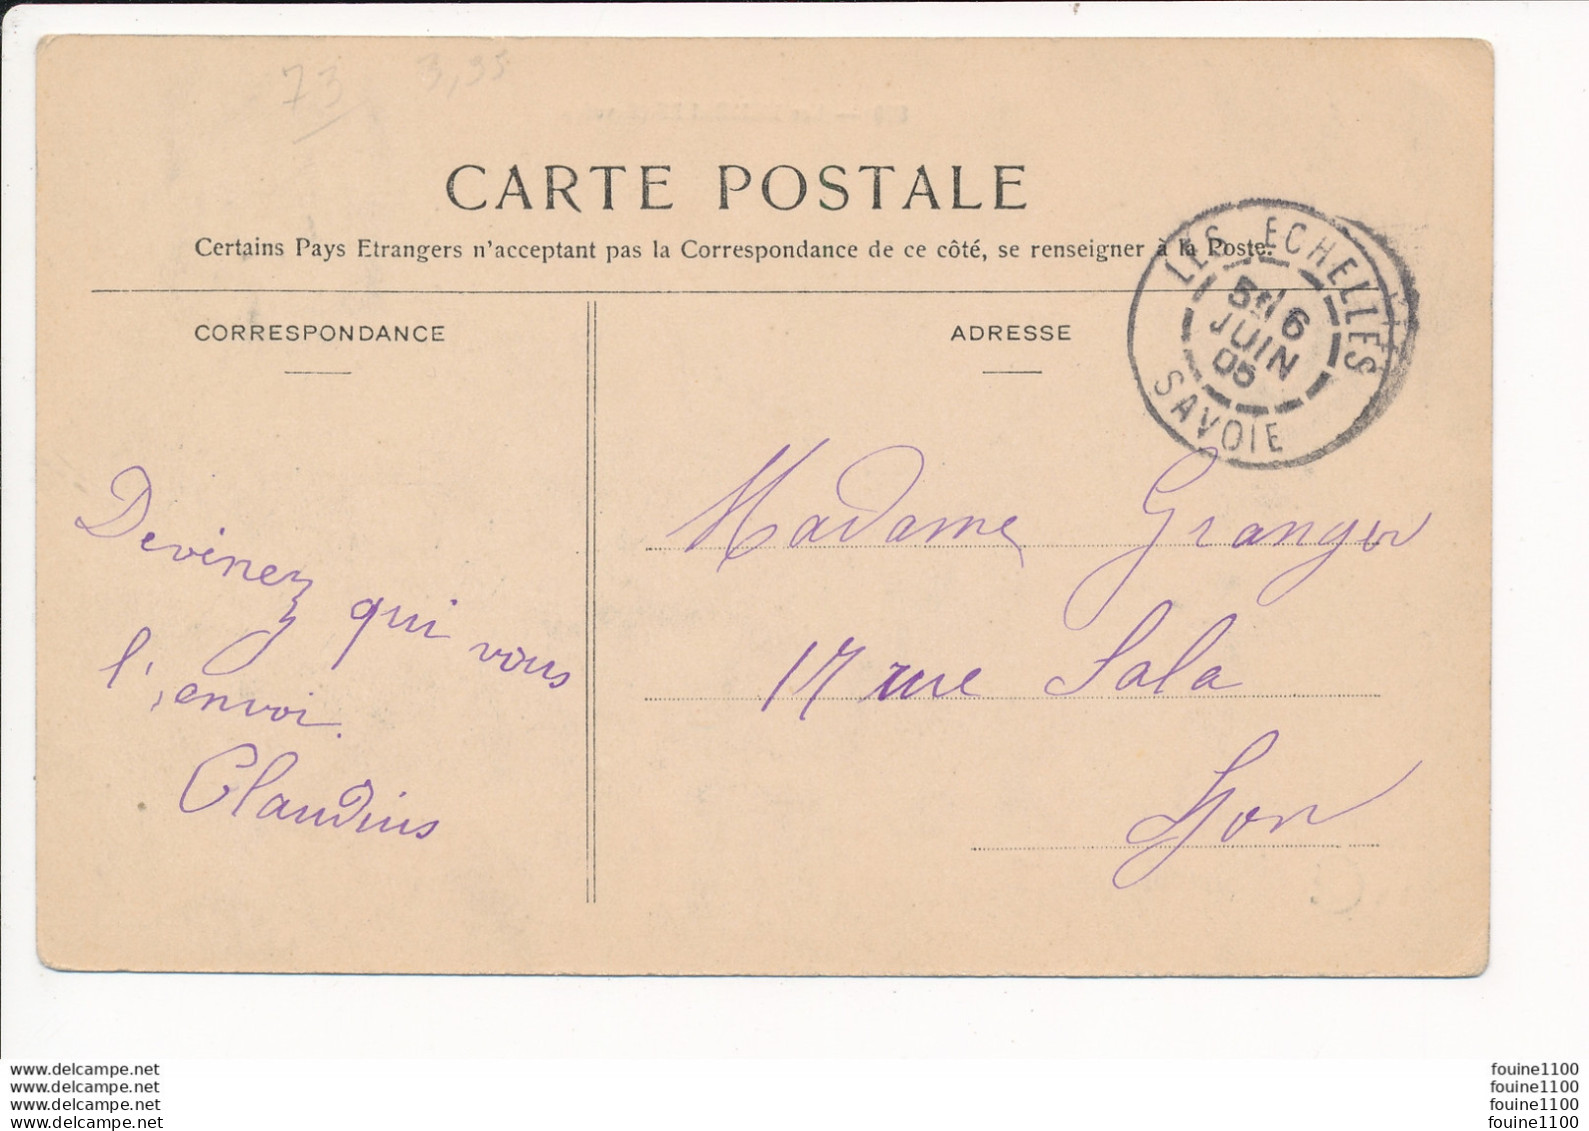 73 3,95
CARTE POSTALE
Certains Pays Etrangers n'acceptant pas la Correspondance de ce côté, se renseigner à la Poste.
CORRESPONDANCE
ADRESSE
LES ECHELLES
6
JUIN
05
SAVOIE
Devinez qui vous
l'envoi.
Claudius
Madame Granger
17 rue Sala
Lyon
www.delcampe.net
www.delcampe.net
www.delcampe.net
www.delcampe.net
fouine1100
fouine1100
fouine1100
fouine1100